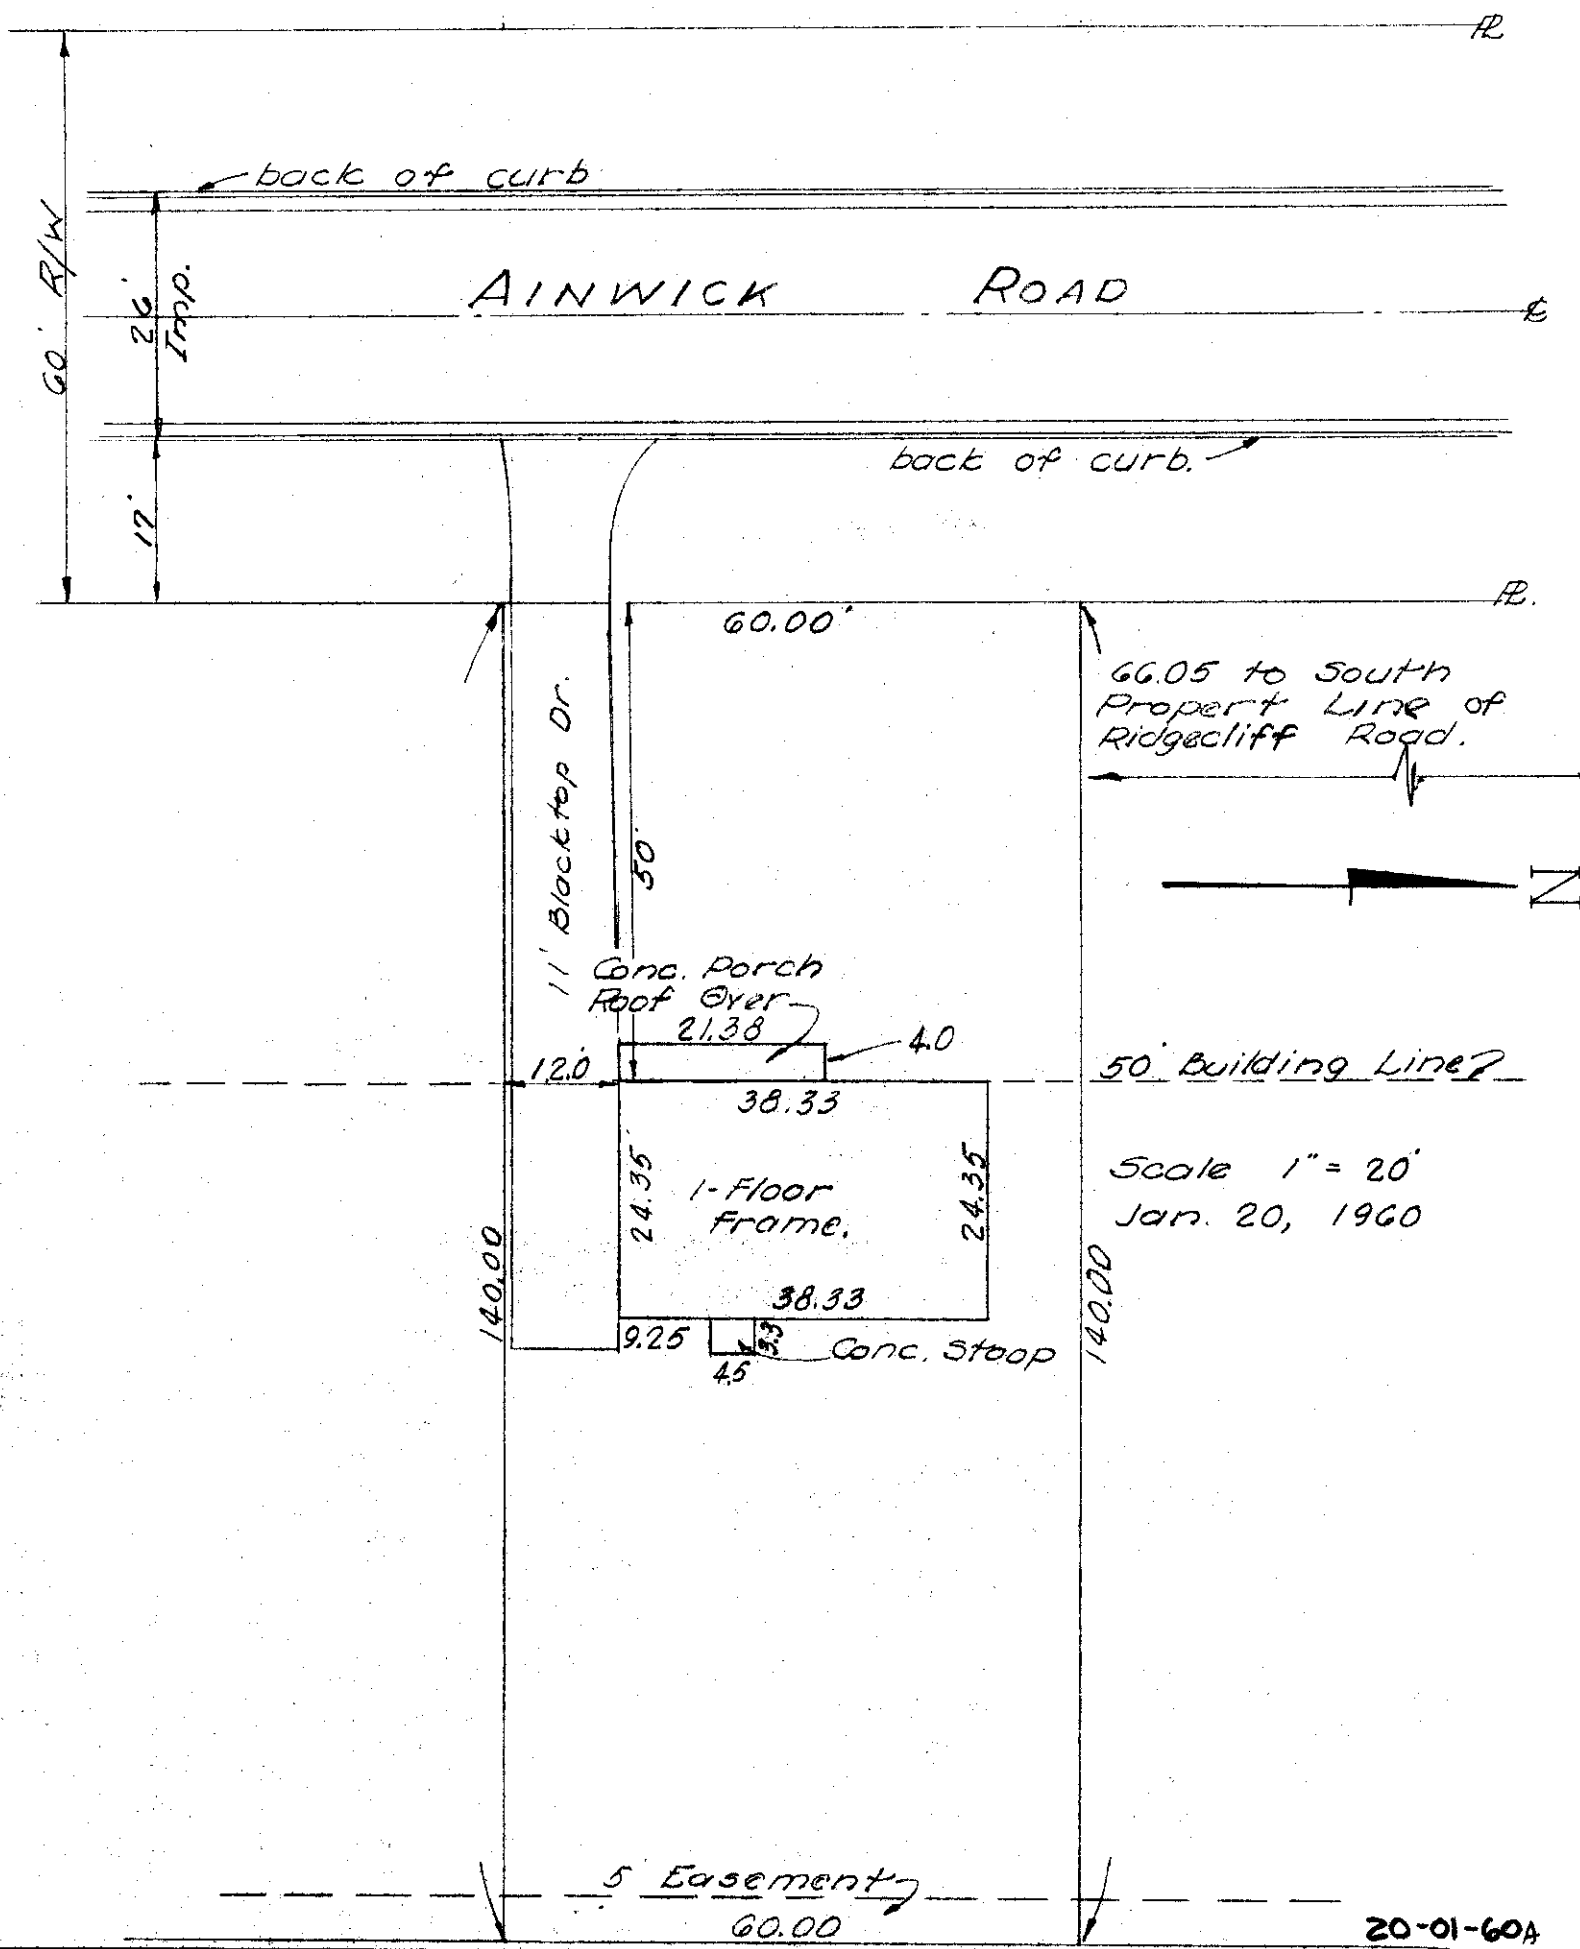 PL
back of curb
60' R/W
26'
Imp.
AINWICK ROAD
CL
back of curb.
17'
PL.
60.00'
66.05 to South
Propert Line of
Ridgecliff Road.
11' Blacktop Dr.
50'
N
Conc. Porch
Roof Over
21.38
4.0
12.0'
50' Building Line
38.33
24.35'
1-Floor
Frame.
24.35
Scale 1" = 20'
Jan. 20, 1960
140.00
140.00
38.33
9.25
3.3
4.5
Conc. Stoop
5' Easement
60.00
20-01-60A